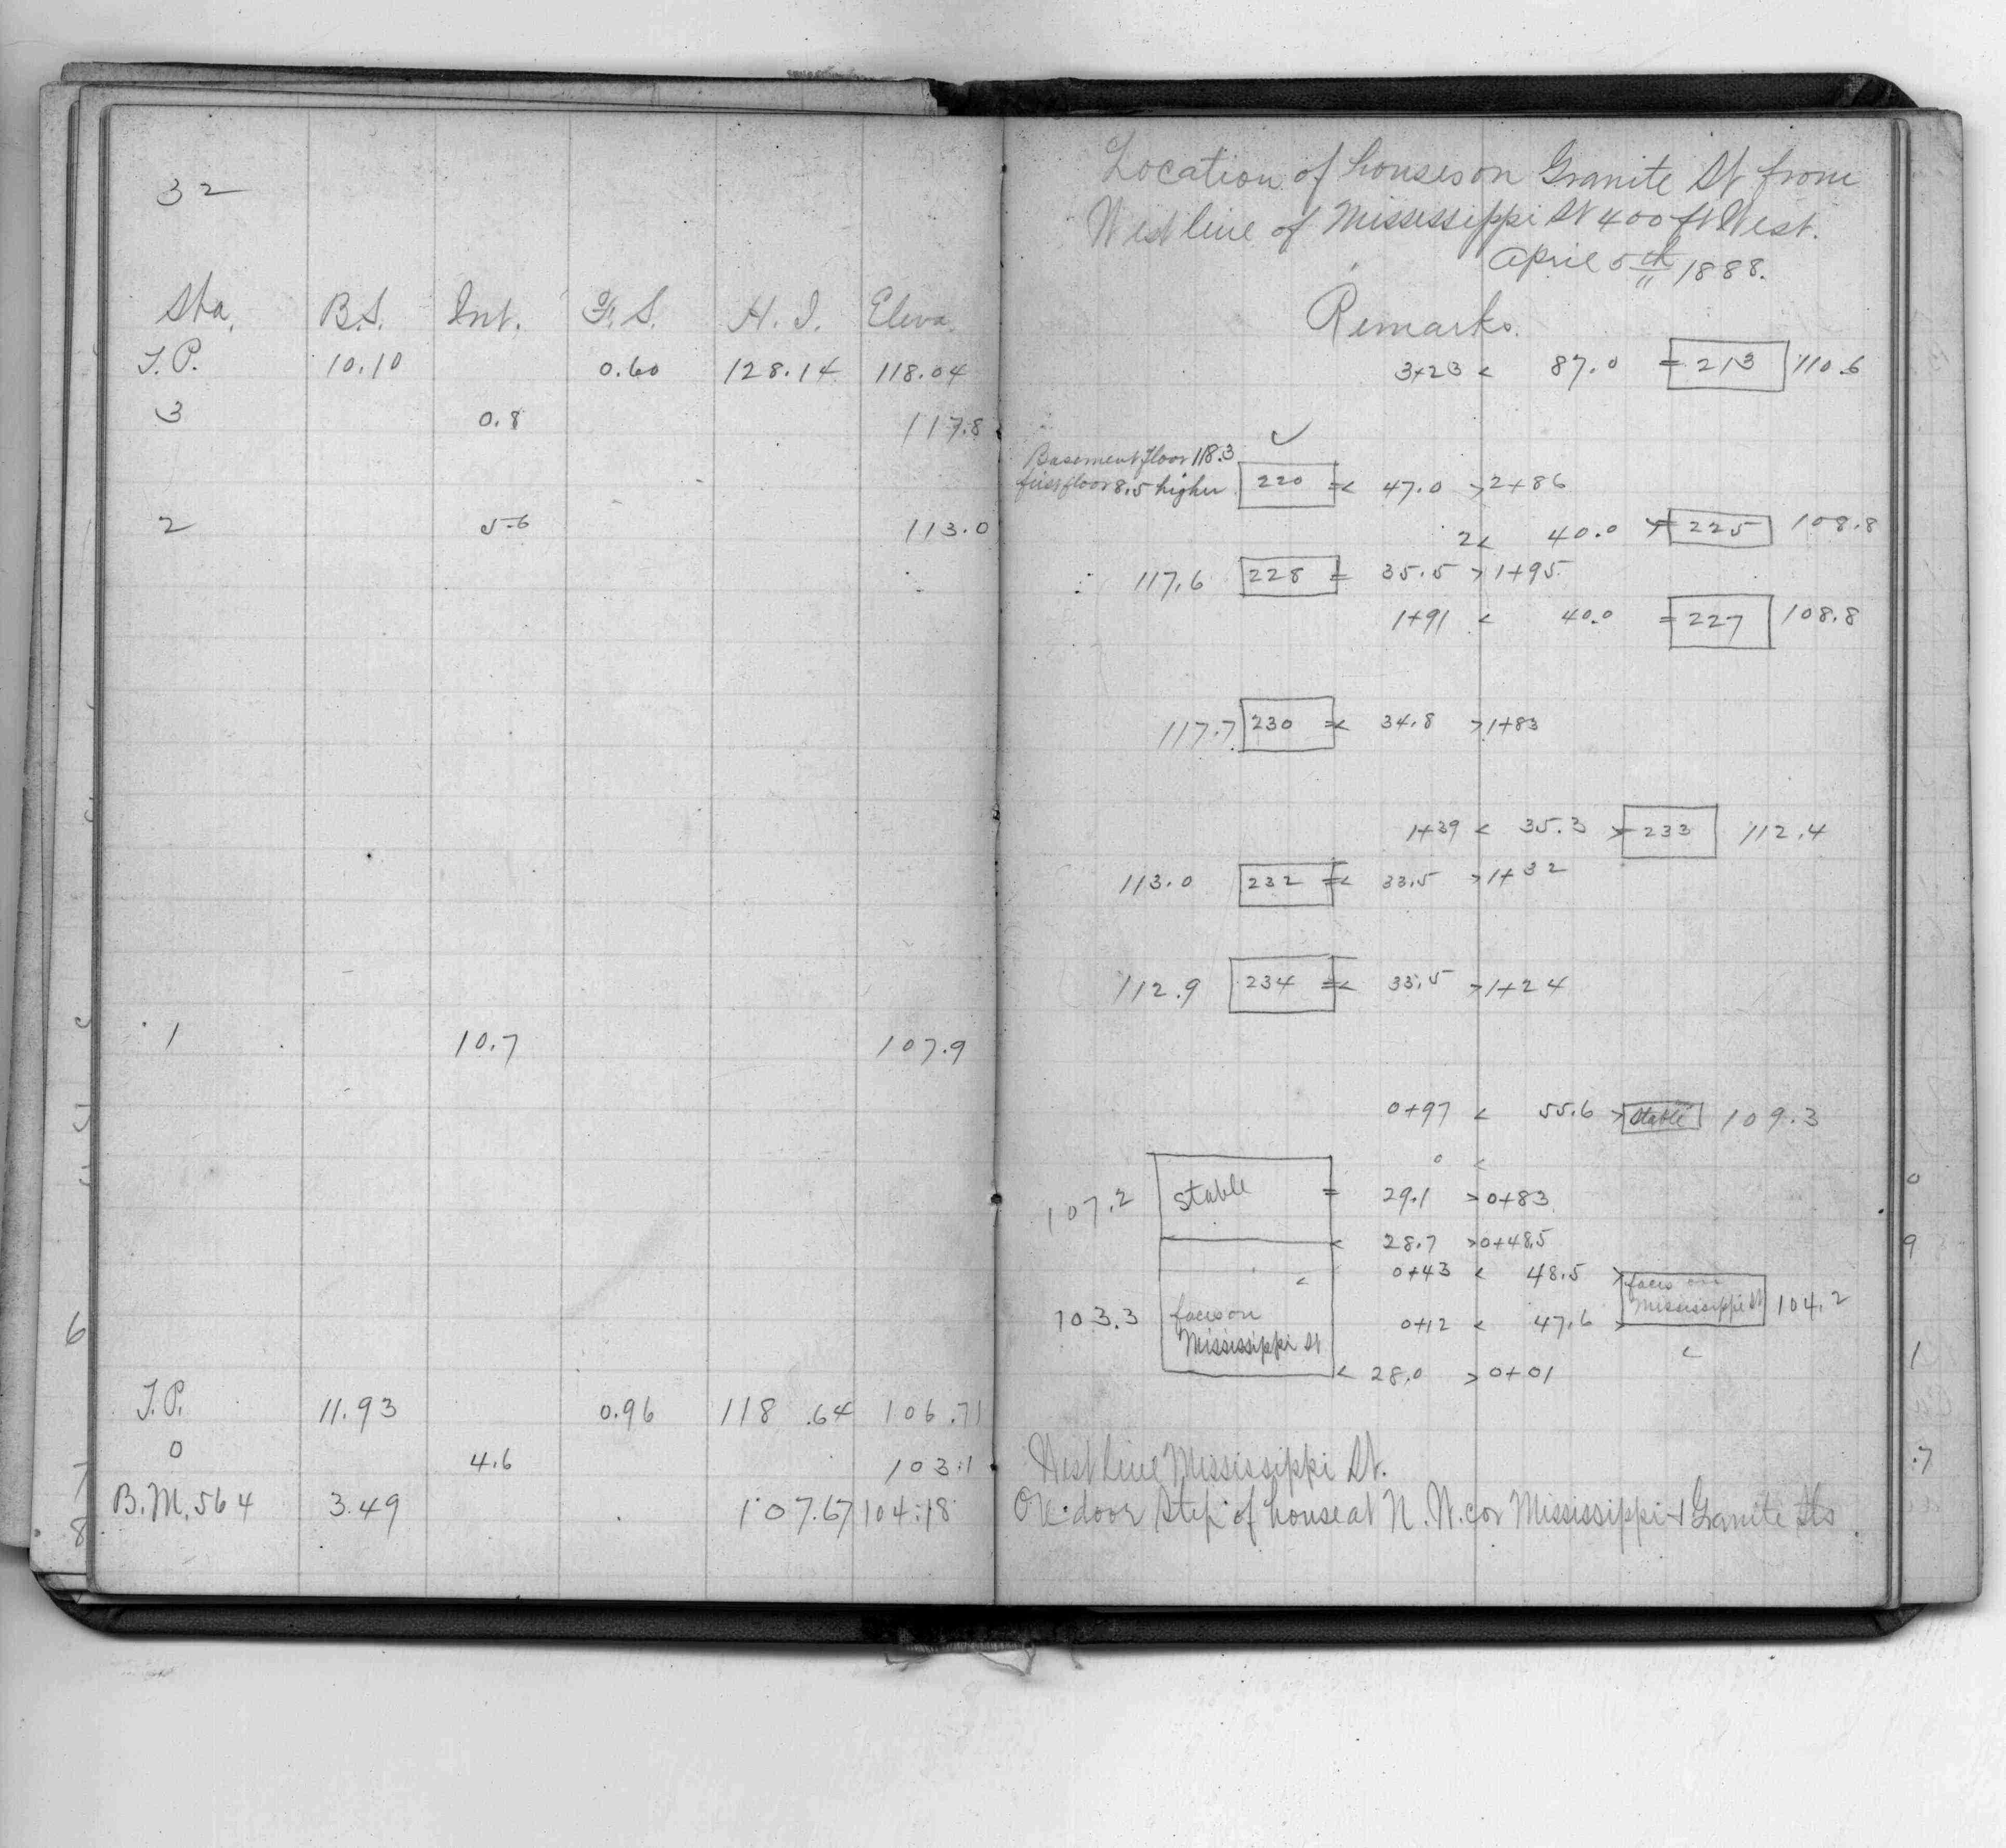 32
Sta. B.S. Int. F.S. H.I. Eleva.
T.P. 10.10 0.60 128.14 118.04
3 0.8 117.8
2 5.6 113.0
1 10.7 107.9
T.P. 11.93 0.96 118.64 106.71
0 4.6 103.1
B.M. 564 3.49 107.67 104.18
Location of houses on Granite St from
West line of Mississippi St 400 ft West.
April 5th 1888.
Remarks.
3+23 < 87.0 = 213 110.6
Basement floor 118.3
first floor 8.5 higher 220 =< 47.0 > 2+86
2 < 40.0 >= 225 108.8
117.6 228 = 35.5 > 1+95
1+91 < 40.0 = 227 108.8
117.7 230 =< 34.8 > 1+83
1+39 < 35.3 > 233 112.4
113.0 232 =< 33.5 > 1+32
112.9 234 =< 33.5 > 1+24
0+97 < 55.6 > Stable 109.3
0 <
107.2 Stable = 29.1 > 0+83
< 28.7 > 0+48.5
0+43 < 48.5 > faces on
Mississippi St 104.2
103.3 faces on
Mississippi St
0+12 < 47.6 >
< 28.0 > 0+01
West line Mississippi St.
On door step of house at N.W. cor Mississippi + Granite Sts